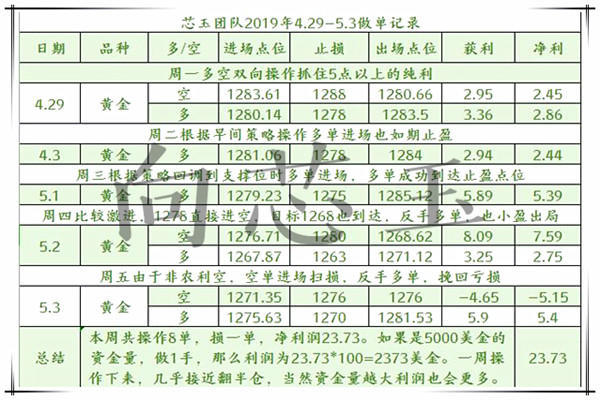 芯玉团队2019年4.29-5.3做单记录
日期 品种 多/空 进场点位 止损 出场点位 获利 净利
周一多空双向操作抓住5点以上的纯利
4.29 黄金 空 1283.61 1288 1280.66 2.95 2.45
多 1280.14 1278 1283.5 3.36 2.86
周二根据早间策略操作多单进场也如期止盈
4.3 黄金 多 1281.06 1278 1284 2.94 2.44
周三根据策略回调到支撑位时多单进场，多单成功到达止盈点位
5.1 黄金 多 1279.23 1275 1285.12 5.89 5.39
周四比较激进，1278直接进空，目标1268也到达，反手多单，也小盈出局
5.2 黄金 空 1276.71 1280 1268.62 8.09 7.59
多 1267.87 1263 1271.12 3.25 2.75
周五由于非农利空，空单进场扫损，反手多单，挽回亏损
5.3 黄金 空 1271.35 1276 1276 -4.65 -5.15
多 1275.63 1270 1281.53 5.9 5.4
总结 本周共操作8单，损一单，净利润23.73。如果是5000美金的
资金量，做1手，那么利润为23.73*100=2373美金。一周操
作下来，几乎接近翻半仓，当然资金量越大利润也会更多。
23.73
向芯玉